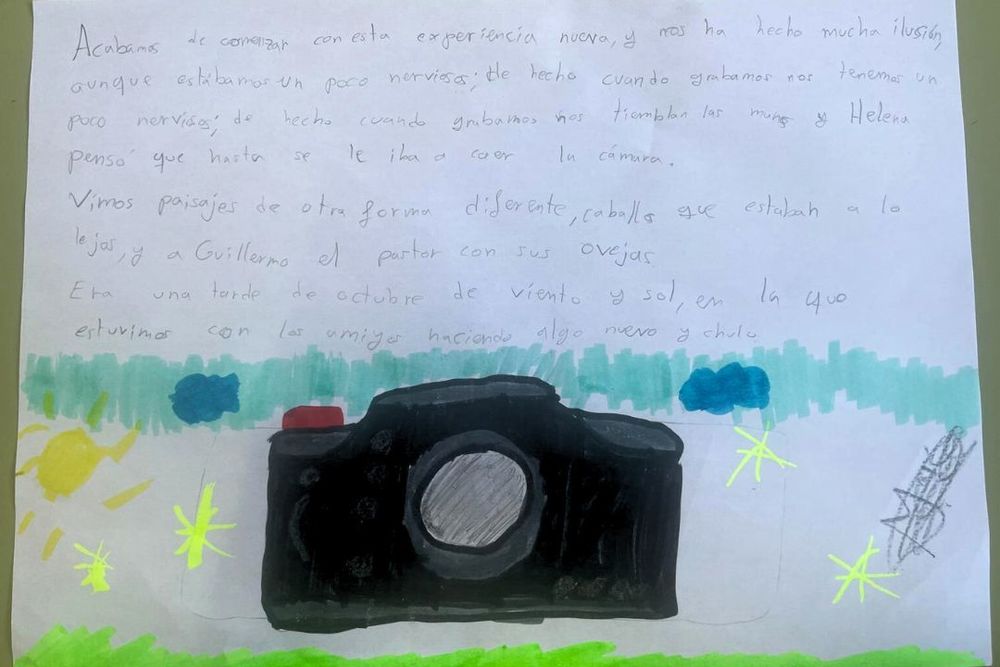 Acabamos de comenzar con esta experiencia nueva, y nos ha hecho mucha ilusión,
aunque estábamos un poco nerviosos; de hecho cuando grabamos nos tenemos un
poco nerviosos; de hecho cuando grabamos nos tiemblan las manos y Helena
pensó que hasta se le iba a caer la cámara.
Vimos paisajes de otra forma diferente, caballos que estaban a lo
lejos, y a Guillermo el pastor con sus ovejas.
Era una tarde de octubre de viento y sol, en la que
estuvimos con los amigos haciendo algo nuevo y chulo